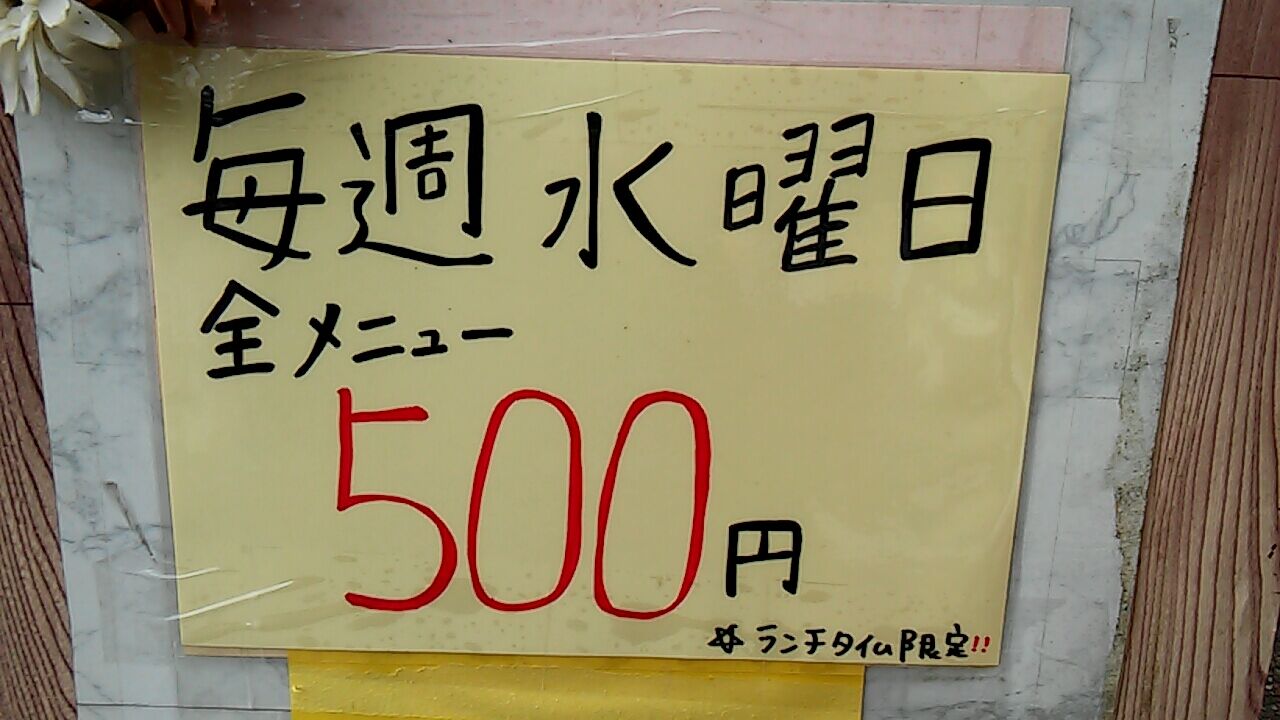 毎週水曜日
全メニュー
500円
☆ランチタイム限定!!